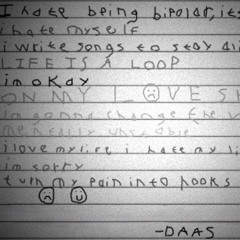 I hate being bipolar, its
i hate myself
i write songs to stay di
LIFE IS A LOOP
im okay
ON MY LOVE S
im gonna change the v
mentally unstable
i love my life i hate my li
im sorry
turn my pain into hooks
-DAAS